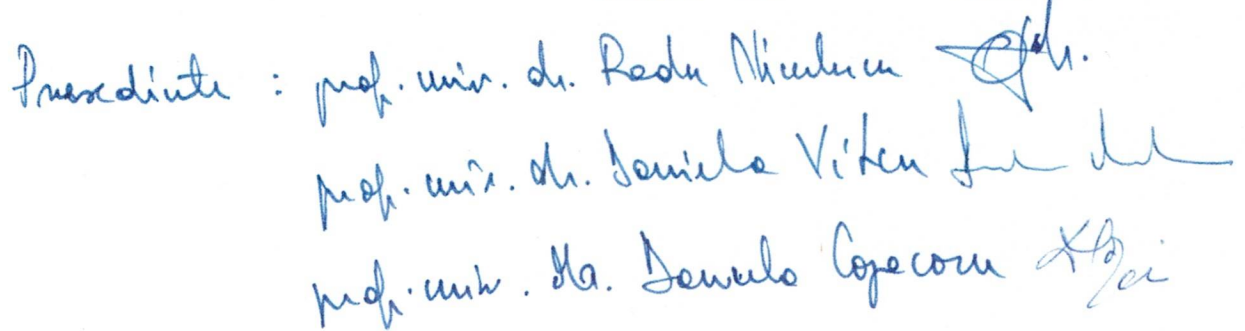 Presedinte : prof. univ. dr. Radu Niculescu
prof. univ. dr. Daniela Vitcu
prof. univ. dr. Daniela